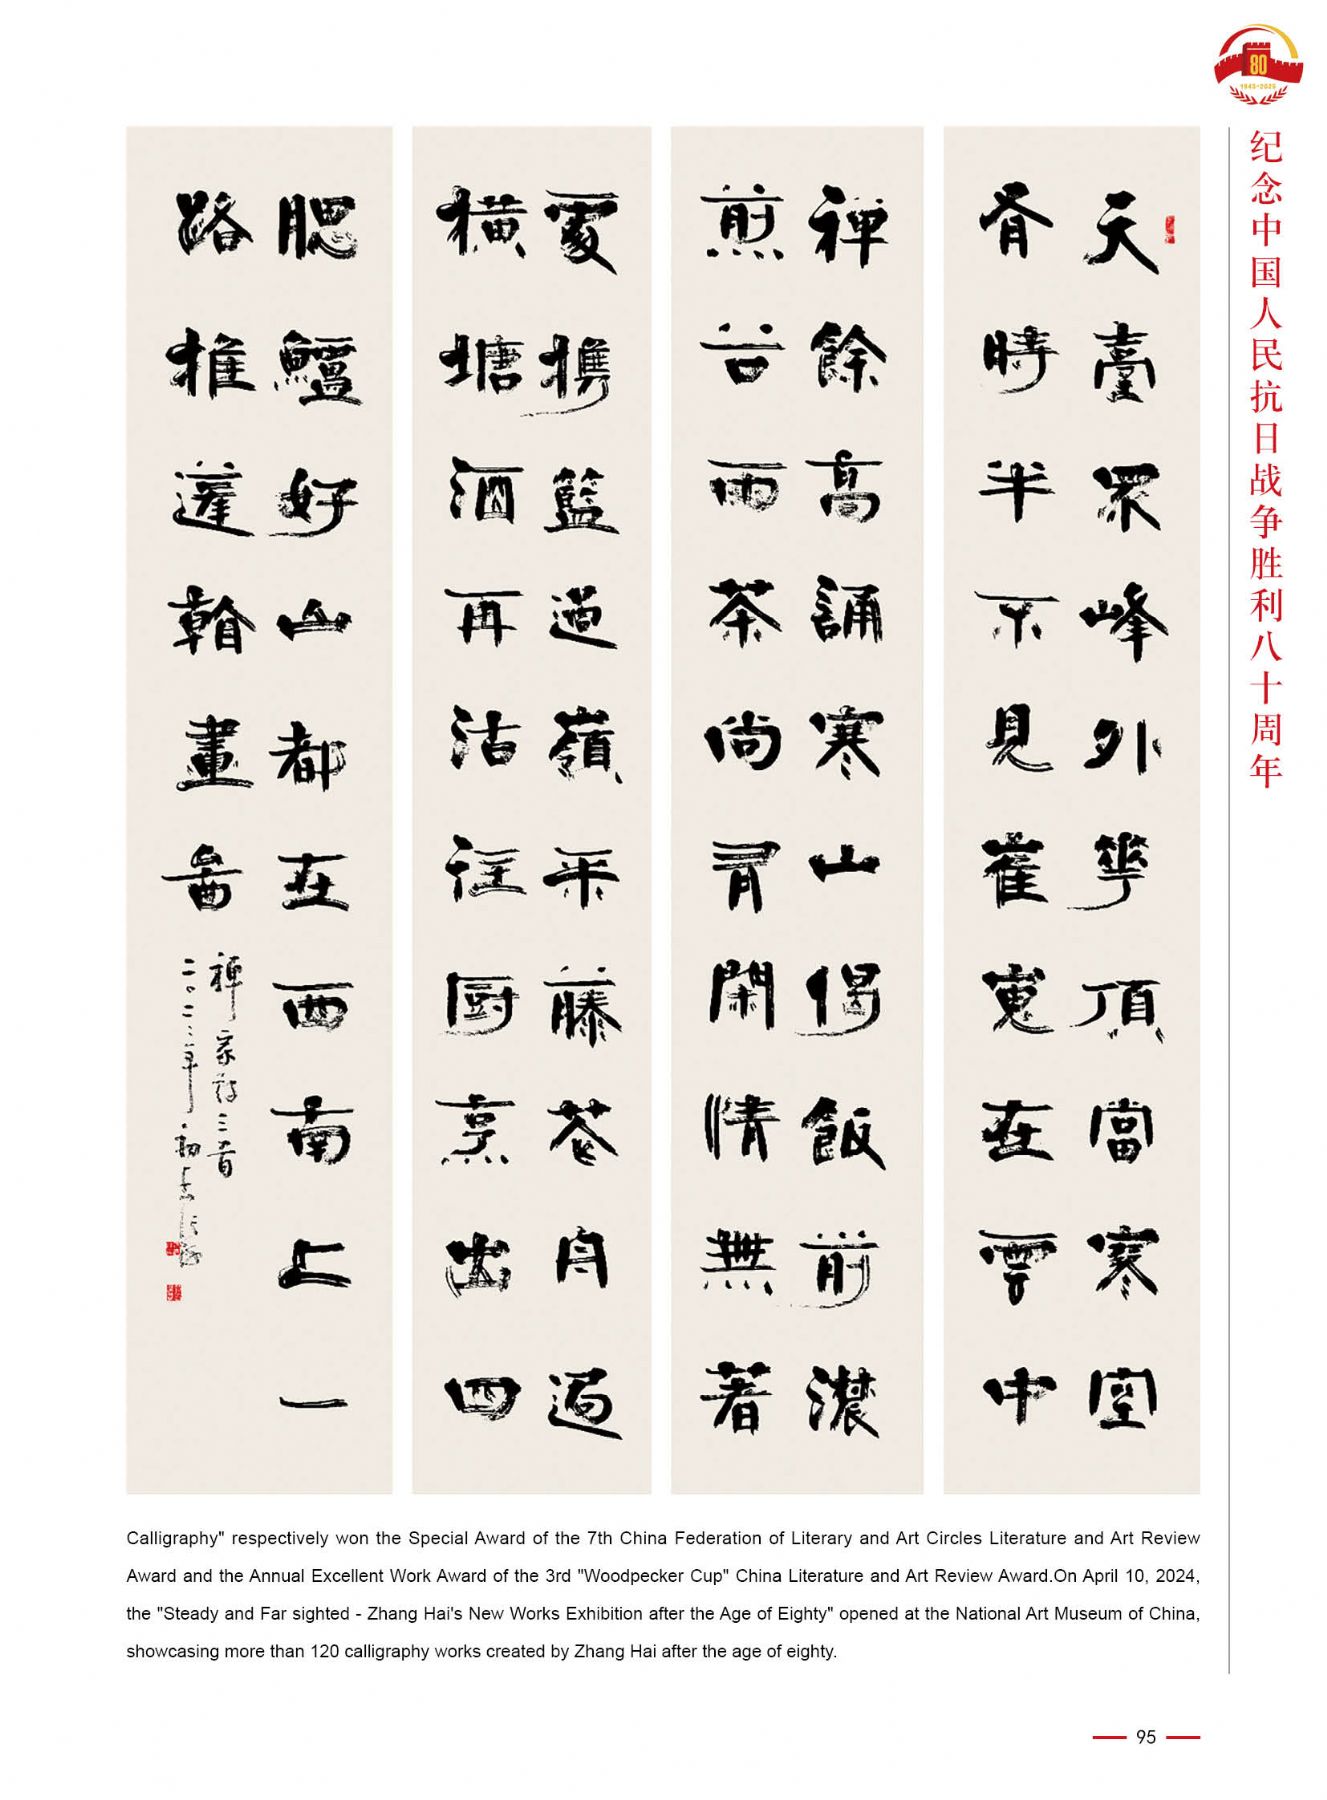 80
1945-2025
纪念中国人民抗日战争胜利八十周年
天臺眾峰外華頂當寒空
有時半不見崔嵬在雲中
禪餘高誦寒山偈飯前濃
煎谷雨茶尚有閑情無著
處攜籃過嶺采藤花舟過
橫塘酒再沽汪厨烹出四
腮鱸好山都在西南上一
路推蓬看畫啚
禪家詩三首
Calligraphy" respectively won the Special Award of the 7th China Federation of Literary and Art Circles Literature and Art Review
Award and the Annual Excellent Work Award of the 3rd "Woodpecker Cup" China Literature and Art Review Award.On April 10, 2024,
the "Steady and Far sighted - Zhang Hai's New Works Exhibition after the Age of Eighty" opened at the National Art Museum of China,
showcasing more than 120 calligraphy works created by Zhang Hai after the age of eighty.
95